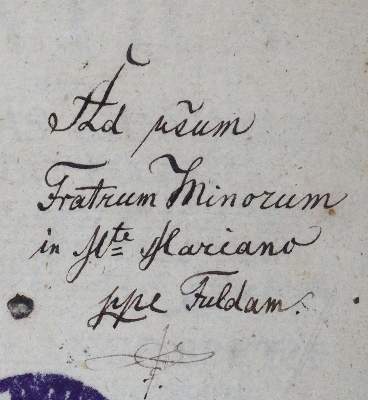 Ad usum
Fratrum Minorum
in Mte Mariano
ppe Fuldam.